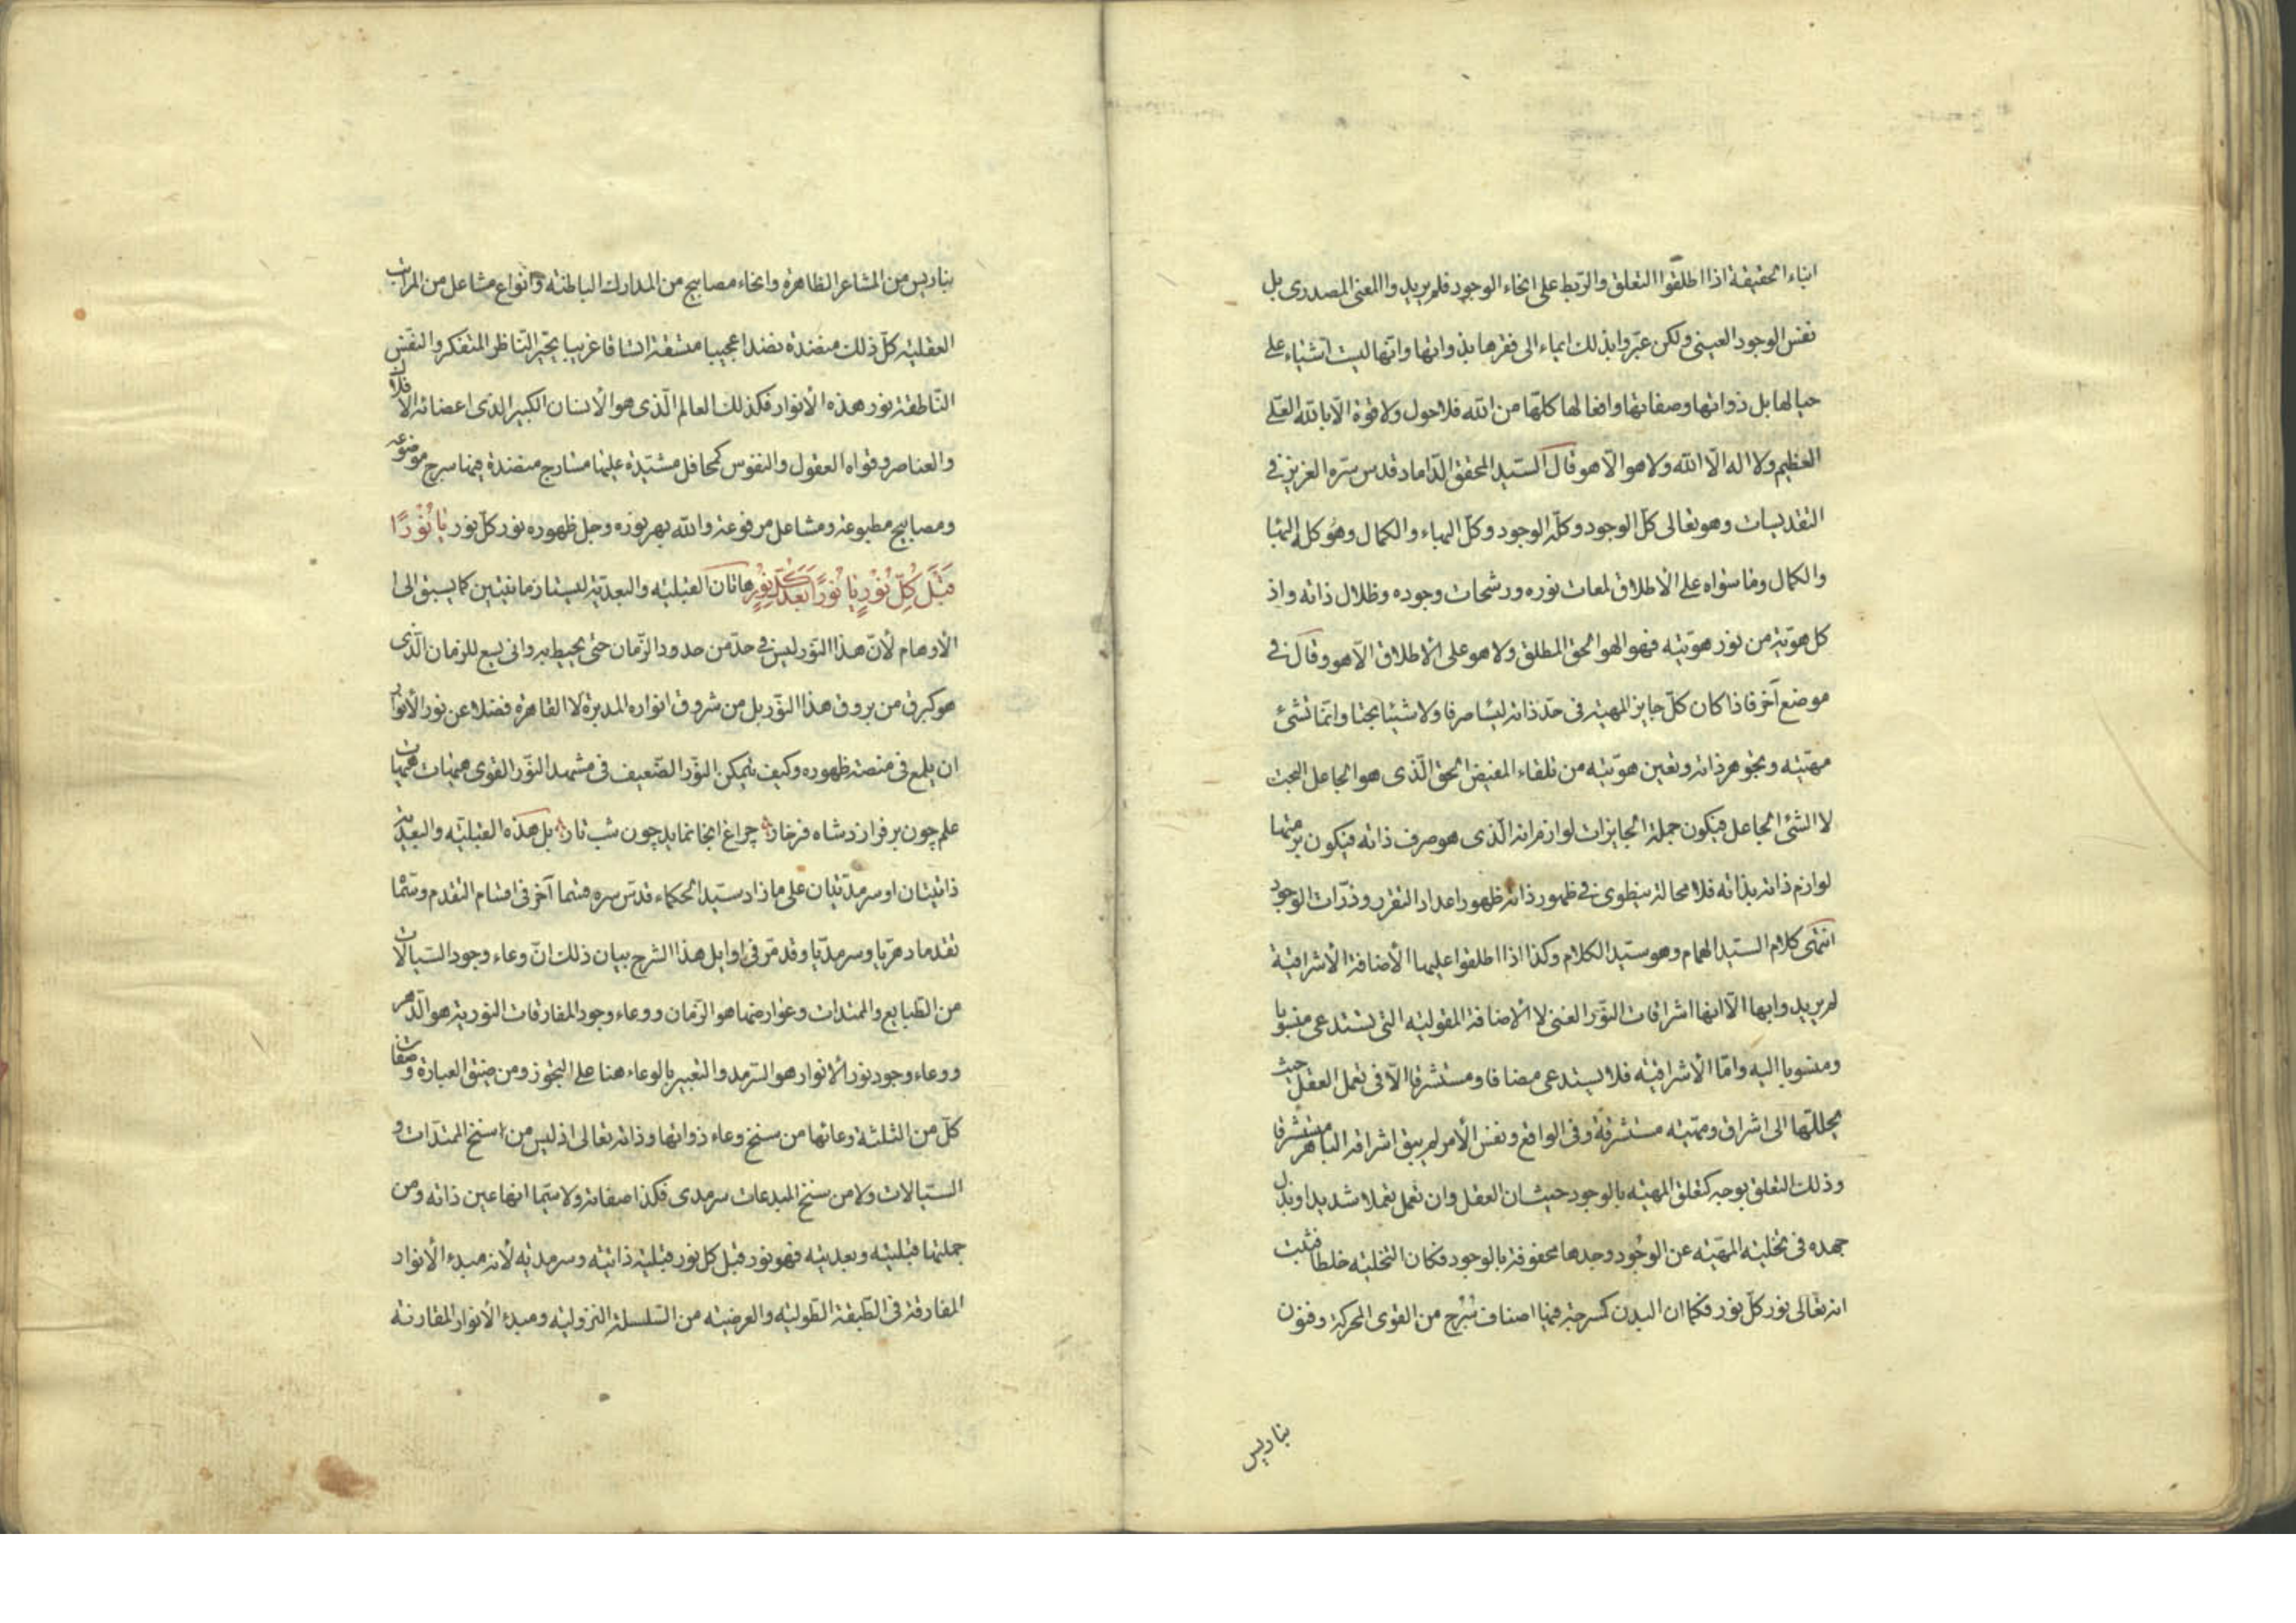 ابناء الحقيقة اذا اطلقوا التعلق والربط على انحاء الوجود فلم يريدوا المعنى المصدرى بل
نفس الوجود العينى ولكن عبّروا بذلك ايماء الى فقرها بذواتها وانها ليست اشياء على
حيالها بل ذواتها وصفاتها وافعالها كلها من الله فلا حول ولا قوة الّا بالله العلى
العظيم ولا اله الّا الله ولا هو الّا هو قال السيّد المحقق الدّاماد قدس سره العزيز فى
التقديسات وهو تعالى كلّ الوجود وكلّه الوجود وكلّ البهاء والكمال وهو كله البهاء
والكمال وما سواه على الاطلاق لمعات نوره ورشحات وجوده وظلال ذاته واذ
كل هويّة من نور هويّته فهو الهو الحق المطلق ولا هو على الاطلاق الّا هو وقال فى
موضع آخر فاذا كان كلّ جايز المهية فى حدّ ذاته ليسا صرفا ولا شيئا بحتا وانما تشئ
مهيّته وتجوهر ذاته وتعين هويّته من تلقاء المفيض الحق الّذى هو الجاعل البحت
لا الشئ الجاعل فيكون جملة الجايزات لوازم انه الّذى هو صرف ذاته فيكون برمتها
لوازم ذاته بذاته فلا محالة ينطوى فى ظهور ذاته ظهور اعداد التقرر وذرّات الوجود
انتهى كلام السيّد الهمام وهو سيّد الكلام وكذا اذا اطلقوا عليها الأضافة الأشراقية
لم يريدوا بها الّا انها اشراقات النّور الغنى لا الاضافة المقولية التى تستدعى منسوبا
ومنسوبا اليه وامّا الأشراقيّه فلا يستدعى مضافا ومستشرقا الّا فى تعمل العقل حيث
يحللها الى اشراق ومهيّه مستشرقة وفى الواقع ونفس الأمر لم يبق اشراقه الباهر مستشرقا
وذلك التعلق بوجه كتعلق المهيّه بالوجود حيث ان العقل وان تعمل تعملا شديدا وبذل
جهده فى تخليه المهيّه عن الوجود وجدها محفوفة بالوجود فكان التخليه خلطا فثبت
انه تعالى نور كلّ نور فكما ان البدن كمسرجة فيها اصناف سُرُج من القوى المحركة وفنون
بناديس
بناديس من المشاعر الظاهرة وانحاء مصابيح من المدارك الباطنة وانواع مشاعل من المراتب
العقلية كلّ ذلك منضدة نضدا عجيبا متسقة اتساقا غريبا يحيّر النّاظر المتفكر والنفس
النّاطقة نور هذه الأنوار فكذلك العالم الّذى هو الأنسان الكبير الذى اعضائه الأفلاك
والعناصر وقواه العقول والنفوس كمحافل مشيّدة عليها مسارج منضدة فيها سرج موضوعه
ومصابيح مطبوعة ومشاعل مرفوعة والله بهر نوره وجل ظهوره نور كلّ نور يا نُوْرًا
قَبْلَ كُلِّ نُوْرٍ يا نُورًا بَعْدَ كُلِّ نُوْرٍ هاتان القبليه والبعديّة ليستا زمانيتين كما يسبق الى
الأوهام لأنّ هذا النّور ليس فى حدّ من حدود الزّمان حتى يحيط به وانى يسع للزمان الّذى
هو كبرق من بروق هذا النّور بل من شروق انواره المدبرة لا القاهرة فضلا عن نور الأنوار
ان يلمع فى منصة ظهوره وكيف يتمكن النّور الضّعيف فى مشهد النّور القوى هيهات هيهات
علم چون برفرازد شاه فرخار چراغ انجا نمايد چون شب تار بل هذه القبليّه والبعديّة
ذاتيتان او سرمديّتان على ما زاد سيّد الحكماء قدّس سره قسما آخر فى اقسام التقدم وسمّاه
تقدما دهريّا وسرمديّا وقد مرّ فى اوايل هذا الشرح بيان ذلك انّ وعاء وجود السّيالات
من الطبايع والممتدات وعوارضها هو الزّمان ووعاء وجود المفارقات النورية هو الدّهر
ووعاء وجود نور الأنوار هو السّرمد والتعبير بالوعاء هنا على التجوز ومن ضيق العبارة وصفات
كلّ من الثلثة وعائها من سنخ وعاء ذواتها وذاته تعالى اذ ليس من سنخ الممتدّات و
السيّالات ولا من سنخ المبدعات سرمدى فكذا صفاته ولا سيّما انها عين ذاته ومن
جملتها قبليّته وبعديته فهو نور قبل كل نور قبليّة ذاتيّه وسرمديه لأنه مبدء الأنوار
المفارقة فى الطبقة الطوليّه والعرضيّه من السّلسلة النزوليّه ومبدء الأنوار المقارنة